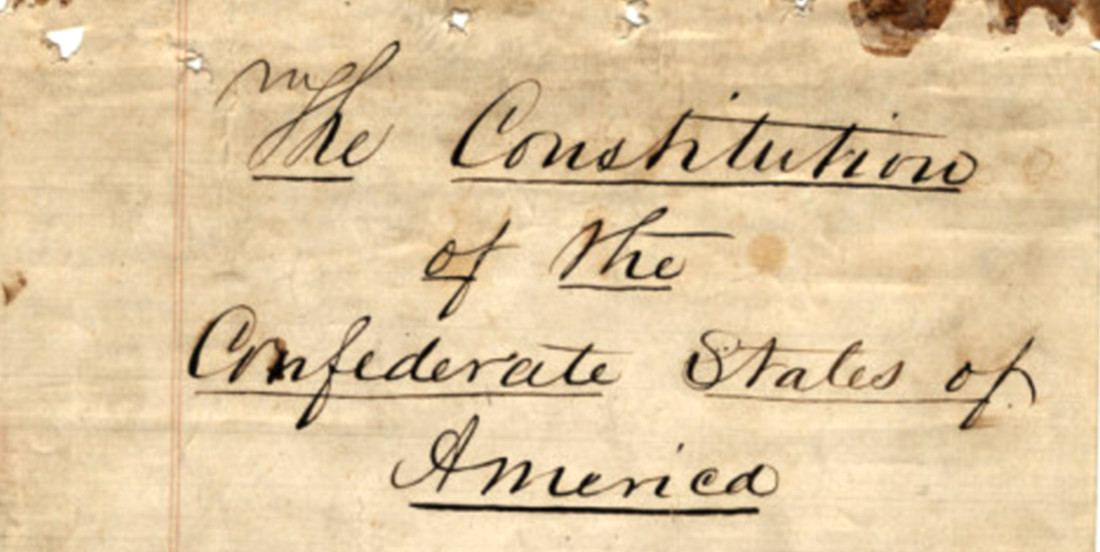 The Constitution
of the
Confederate States of
America